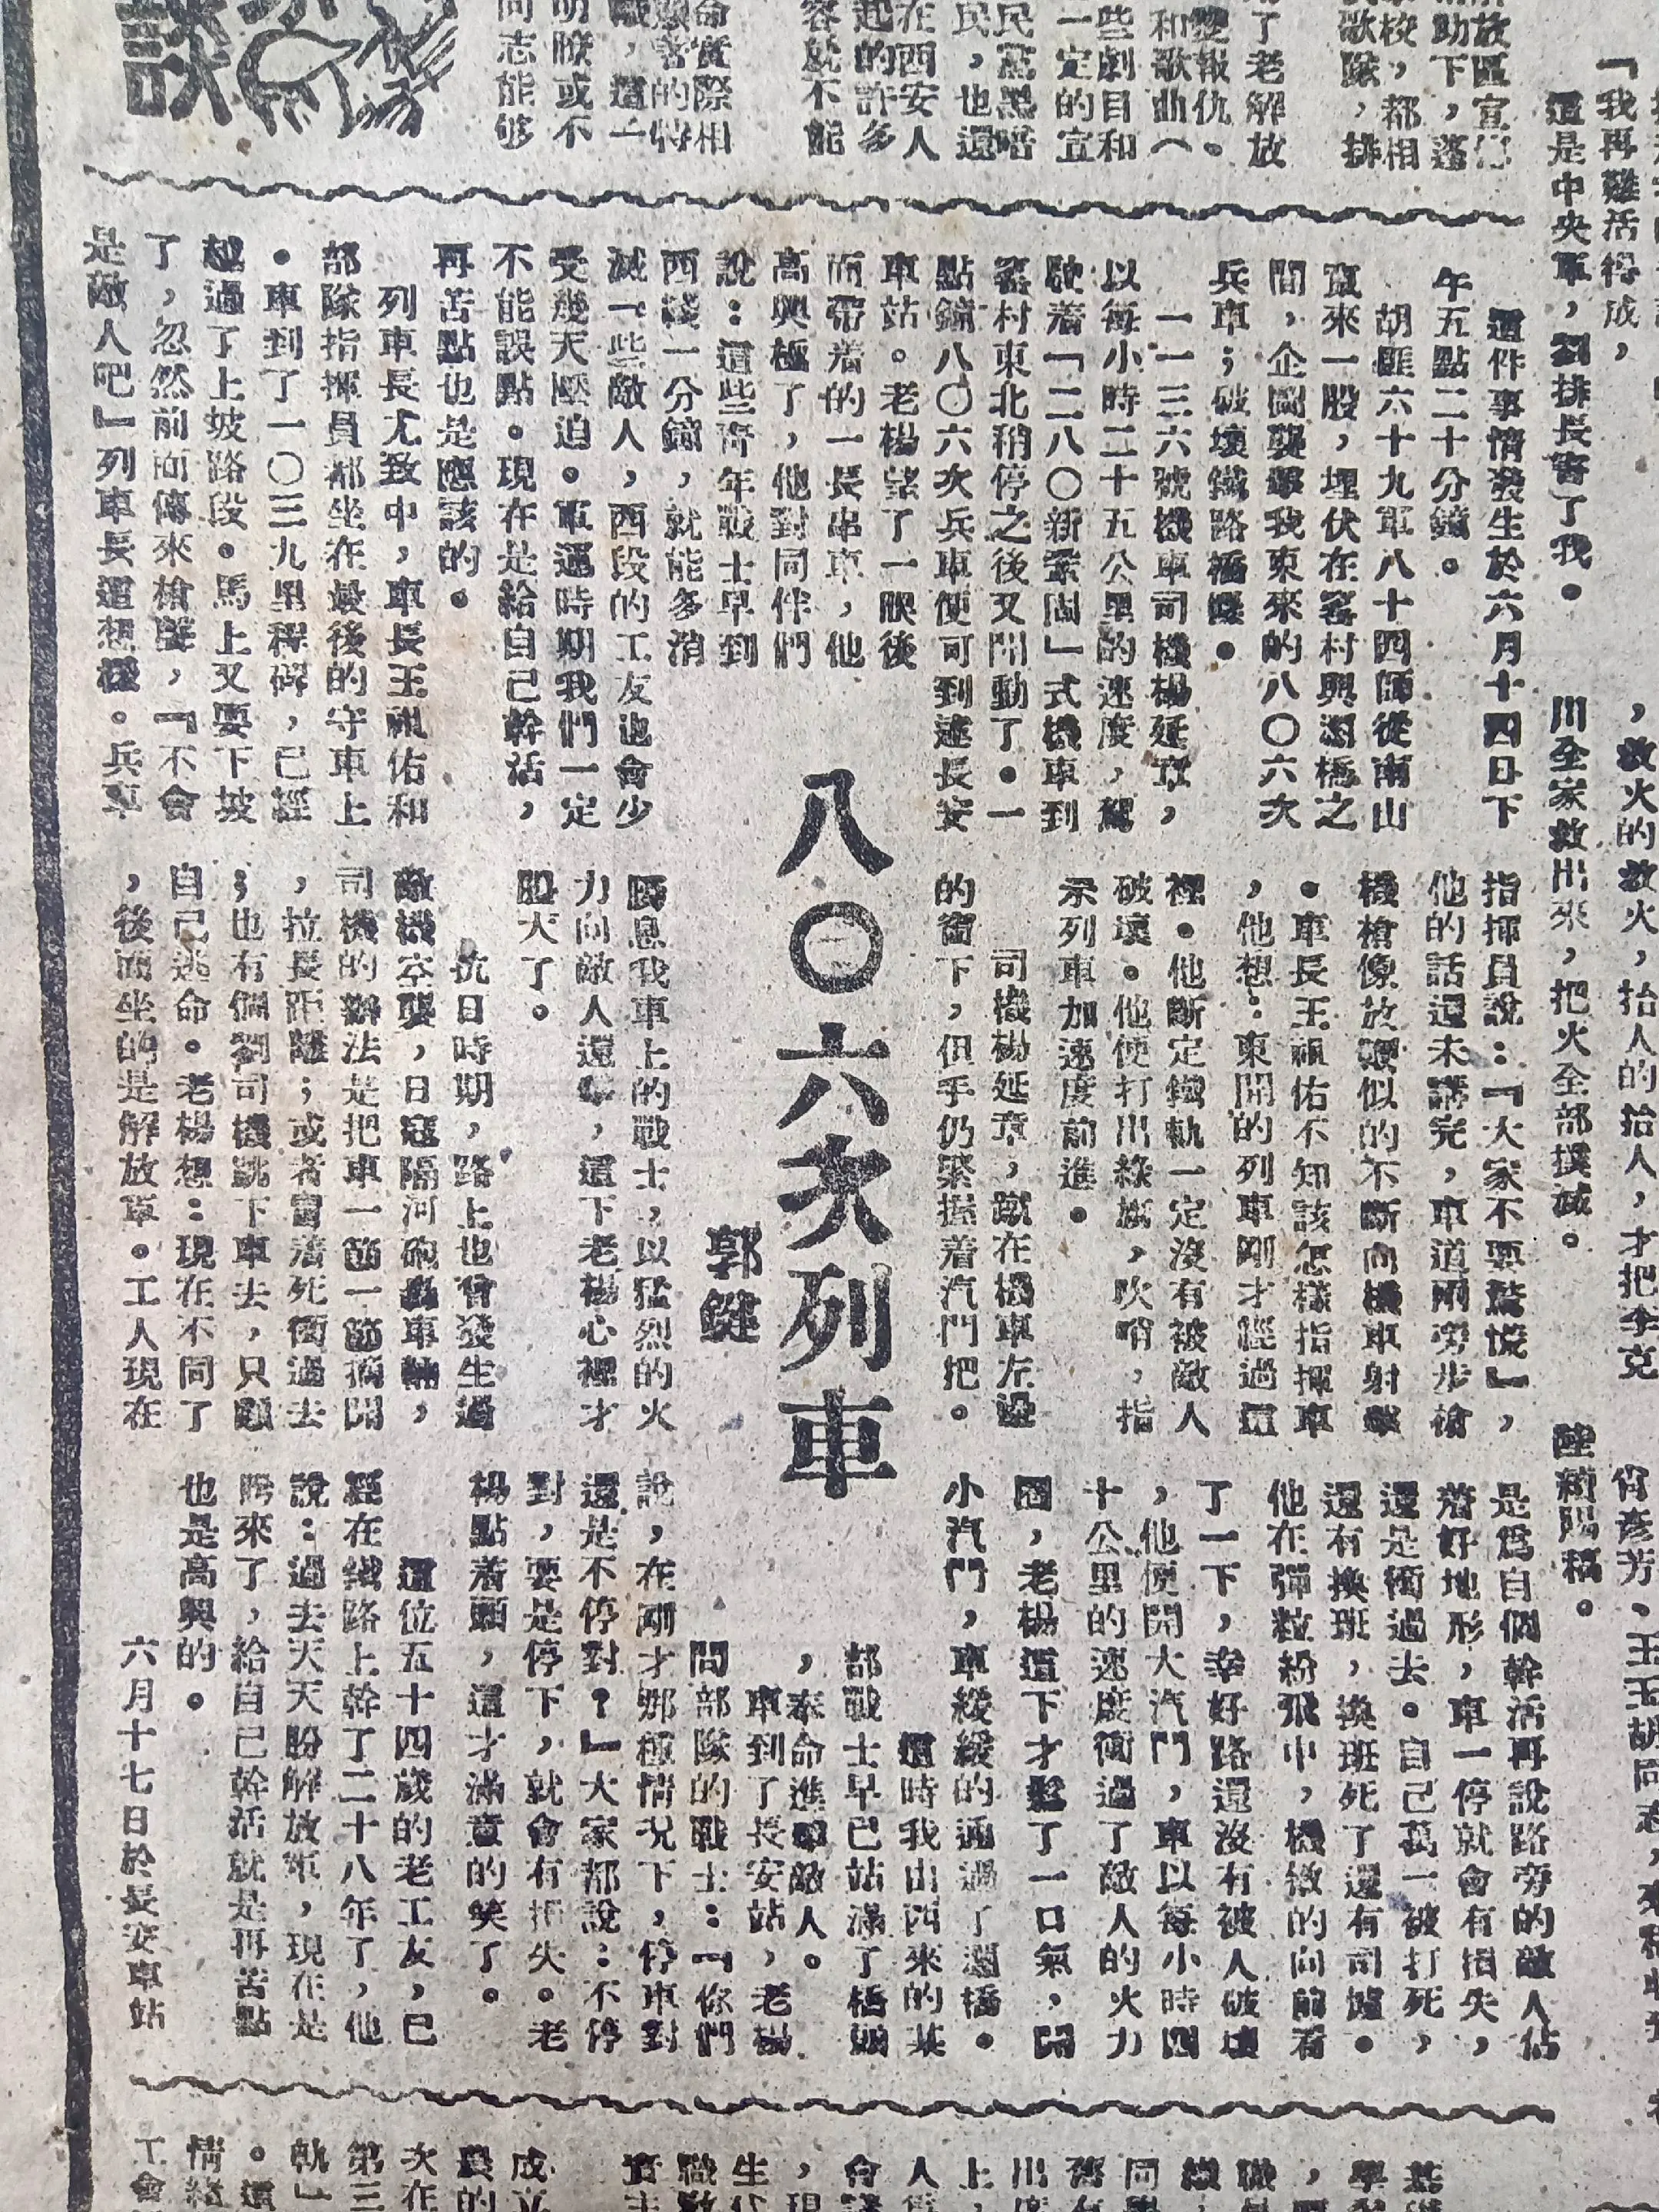 「我再難活得成，
這是中央軍，劉排長審了我。
，救火的救火，抬人的抬人，才把李克
川全家救出來，把火全部撲滅。
放區宣
助下，蓬
校，都相
歌隊，排
了老解放
報仇。
和歌曲（
些劇目和
一定的宣
民黨黑暗
民，也還
在西安人
起的許多
容就不能
命實際相
害的特
，這一
明瞭或不
同志能够
談
八〇六次列車
郭鍵
這件事情發生於六月十四日下
午五點二十分鐘。
胡匪六十九軍八十四師從南山
竄來一股，埋伏在窰村興灞橋之
間，企圖襲擊我東來的八〇六次
兵車；破壞鐵路橋樑。
一一三六號機車司機楊延章，
以每小時二十五公里的速度，駕
駛着「二八〇新業固」式機車到
窰村東北稍停之後又開動了。一
點鐘八〇六次兵車便可到達長安
車站。老楊望了一眼後
面帶着的一長串車，他
高興極了，他對同伴們
說：這些青年戰士早到
西綫一分鐘，就能多消
滅一些敵人，西段的工友也會少
受幾天壓迫。軍運時期我們一定
不能誤點。現在是給自己幹活，
再苦點也是應該的。
列車長尤致中，車長王祖佑和
部隊指揮員都坐在最後的守車上
。車到了一〇三九里程碑，已經
越過了上坡路段。馬上又要下坡
了，忽然前面傳來槍聲，「不會
是敵人吧」列車長這想樣。兵車
指揮員說：「大家不要驚慌」，
他的話還未講完，車道兩旁步槍
機槍像放鞭似的不斷向機車射擊
。車長王祖佑不知該怎樣指揮車
，他想：東開的列車剛才經過這
裡。他斷定鐵軌一定沒有被敵人
破壞。他便打出綠旗，吹哨，指
示列車加速度前進。
司機楊延章，蹴在機車左邊
的窗下，但手仍緊握着汽門把。
瞬息我車上的戰士，以猛烈的火
力向敵人還擊，這下老楊心裡才
胆大了。
抗日時期，路上也曾發生過
敵機空襲，日寇隔河砲轟車輛，
司機的辦法是把車一節一節摘開
，拉長距離；或者冒着死衝過去
；也有個別司機跳下車去，只顧
自己逃命。老楊想：現在不同了
，後面坐的是解放軍。工人現在
是爲自個幹活再說路旁的敵人佔
着好地形，車一停就會有損失，
還是衝過去。自己萬一被打死，
還有換班，換班死了還有司爐。
他在彈粒紛飛中，機敏的向前看
了一下，幸好路還沒有被人破壞
，他便開大汽門，車以每小時四
十公里的速度衝過了敵人的火力
圈，老楊這下才鬆了一口氣，關
小汽門，車緩緩的通過了灞橋。
這時我由西來的某
部戰士早已站滿了橋頭
，奉命進擊敵人。
車到了長安站，老楊
問部隊的戰士：「你們
說，在剛才那種情况下，停車對
還是不停對？」大家都說：不停
對，要是停下，就會有損失。老
楊點着頭，這才滿意的笑了。
這位五十四歲的老工友，已
經在鐵路上幹了二十八年了，他
說：過去天天盼解放軍，現在是
盼來了，給自己幹活就是再苦點
也是高興的。
六月十七日於長安車站